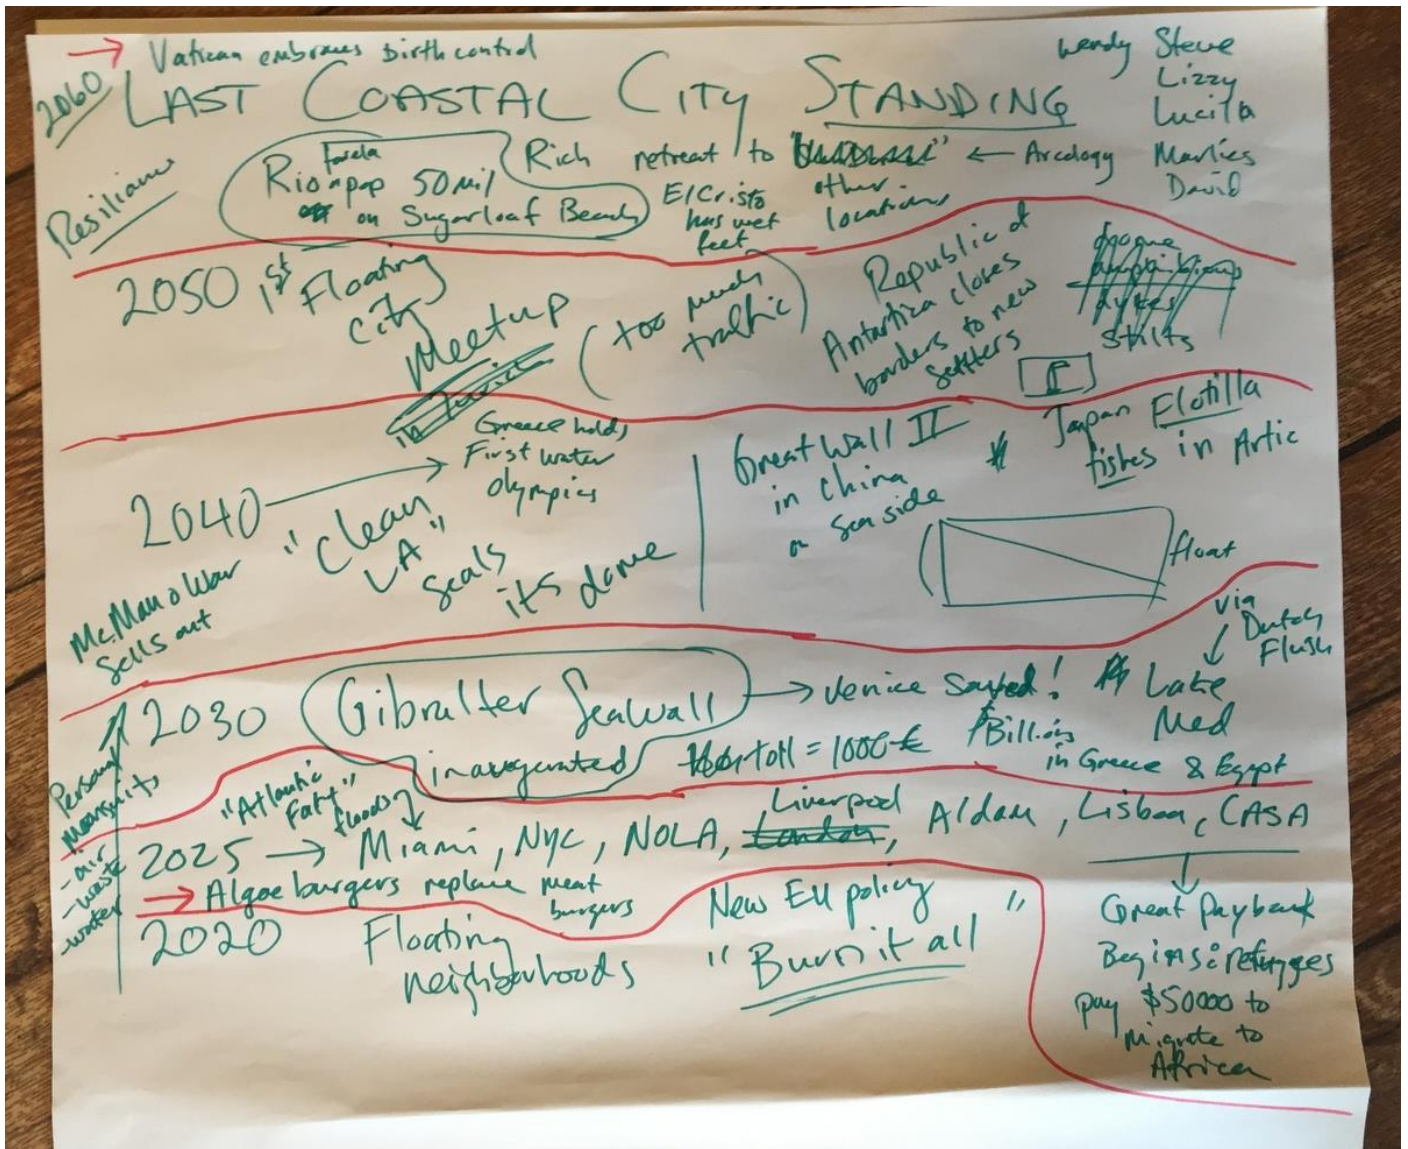 → Vatican embraces birth control
2060
LAST COASTAL CITY STANDING
Wendy Steve
Lizzy
Lucilla
Marlies
David
Resilium
favela
Rio pop 50 mil
on Sugarloaf Beach
Rich retreat to
other
locations
← Arcology
El Cristo
has wet
feet
2050 1st Floating
City
Meetup
in
(too much
traffic)
Republic of
Antartica closes
borders to new
settlers
stilts
2040 →
Greece holds
First water
olympics
"Clean
LA"
seals
its dome
Great Wall II
in China
on sea side
Japan Flotilla
fishes in Artic
float
McMan o War
sells out
2030
Gibralter Seawall
inaugurated
→ Venice saved!
via
Dutch
Flush
Lake
Med
toll = 1000 €
Billions
in Greece & Egypt
Personal
- air
- waste
- water
"Atlantic
Fatt"
floods
2025 → Miami, NYC, NOLA, London, Liverpool, A'dam, Lisbon, CASA
→ Algae burgers replace meat
burgers
2020
Floating
neighborhoods
New EU policy
"Burn it all"
Great Payback
Begins: refugees
pay $50000 to
migrate to
Africa